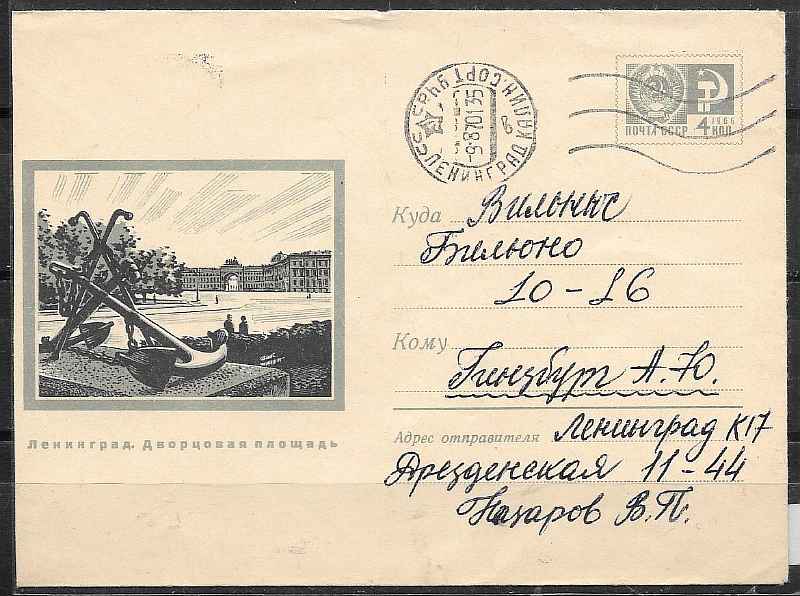 КАЛИН. СОРТ. УЧ.
СССР
ЛЕНИНГРАД
-9.870135
в
1966
ПОЧТА СССР 4 КОП.
Куда Вильнюс
Билюно
10-16
Кому
Гинзбург А.Ю.
Ленинград. Дворцовая площадь
Адрес отправителя Ленинград К17
Дрезденская 11-44
Назаров В.П.